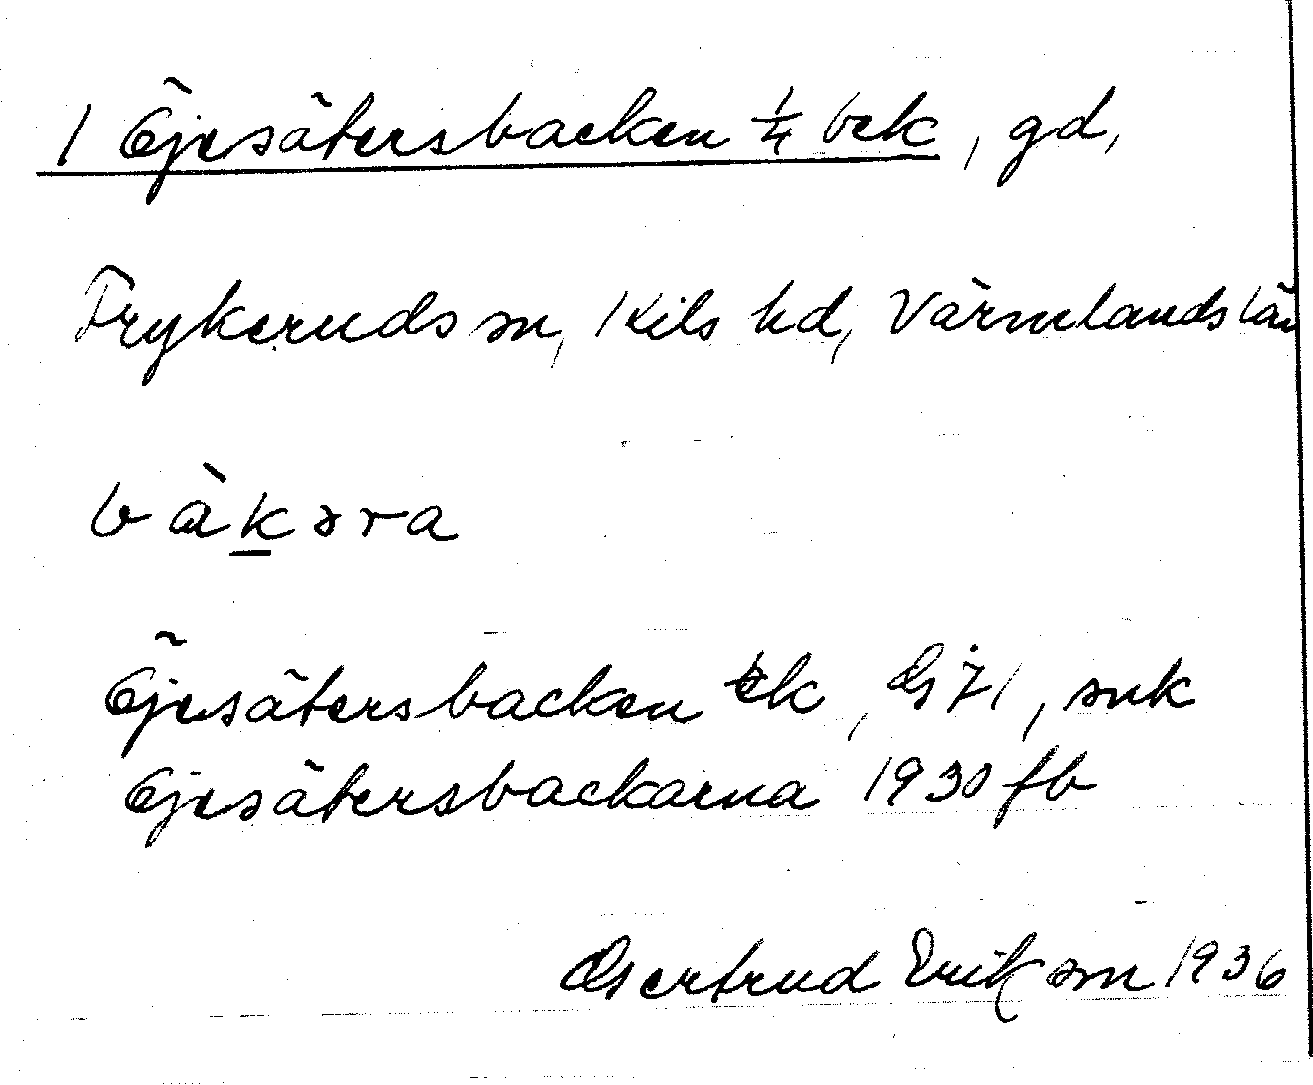 1 Öjesätersbacken 1/4 bek, gd,
Frykeruds sn, Kils hd, Värmlands län
bàkəra
Öjesätersbacken ek, G 71, snk
Öjesätersbackarna 1930 fb
Gertrud Erikson 1936